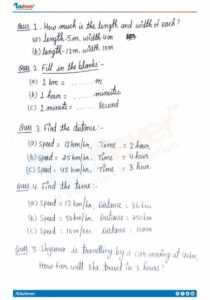 Edufever
Ques 1. How much is the length and width of each?
(a) length-5m, width-4m
(b) length-12m, width 10m
Ques 2. Fill in the blanks:-
(a) 1 km = ........ m
(b) 1 hour = ........ minutes
(c) 1 minute = ........ Second
Ques 3. Find the distance:-
(a) Speed = 12 km/hr, Time = 2 hour
(b) Speed = 25 km/hr, Time = 4 hour
(c) Speed = 45 km/hr, Time = 3 hour
Ques 4. Find the time:-
(a) Speed = 12 km/hr, Distance = 36 km
(b) Speed = 50 km/hr, Distance = 250 km
(c) Speed = 10 m/sec, Distance = 100m
Ques 5. Shyama is travelling by a car moving at
How far will she travel in 3 hours?
/Edufever